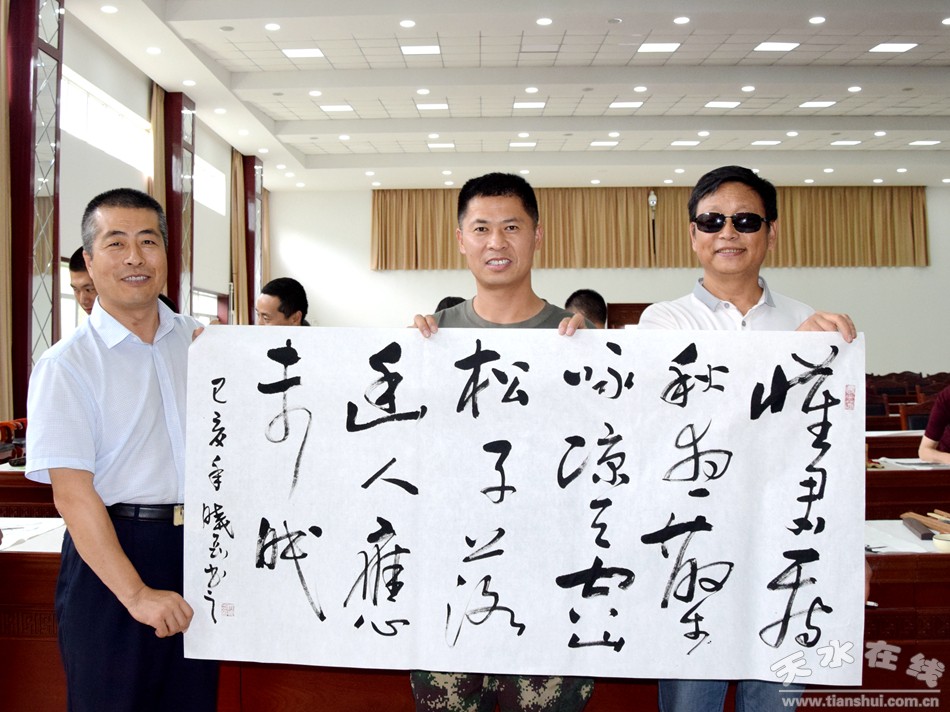 懷君属
秋夜散步
咏凉天空山
松子落
幽人應
未眠
己亥年 书
天水在线
www.tianshui.com.cn